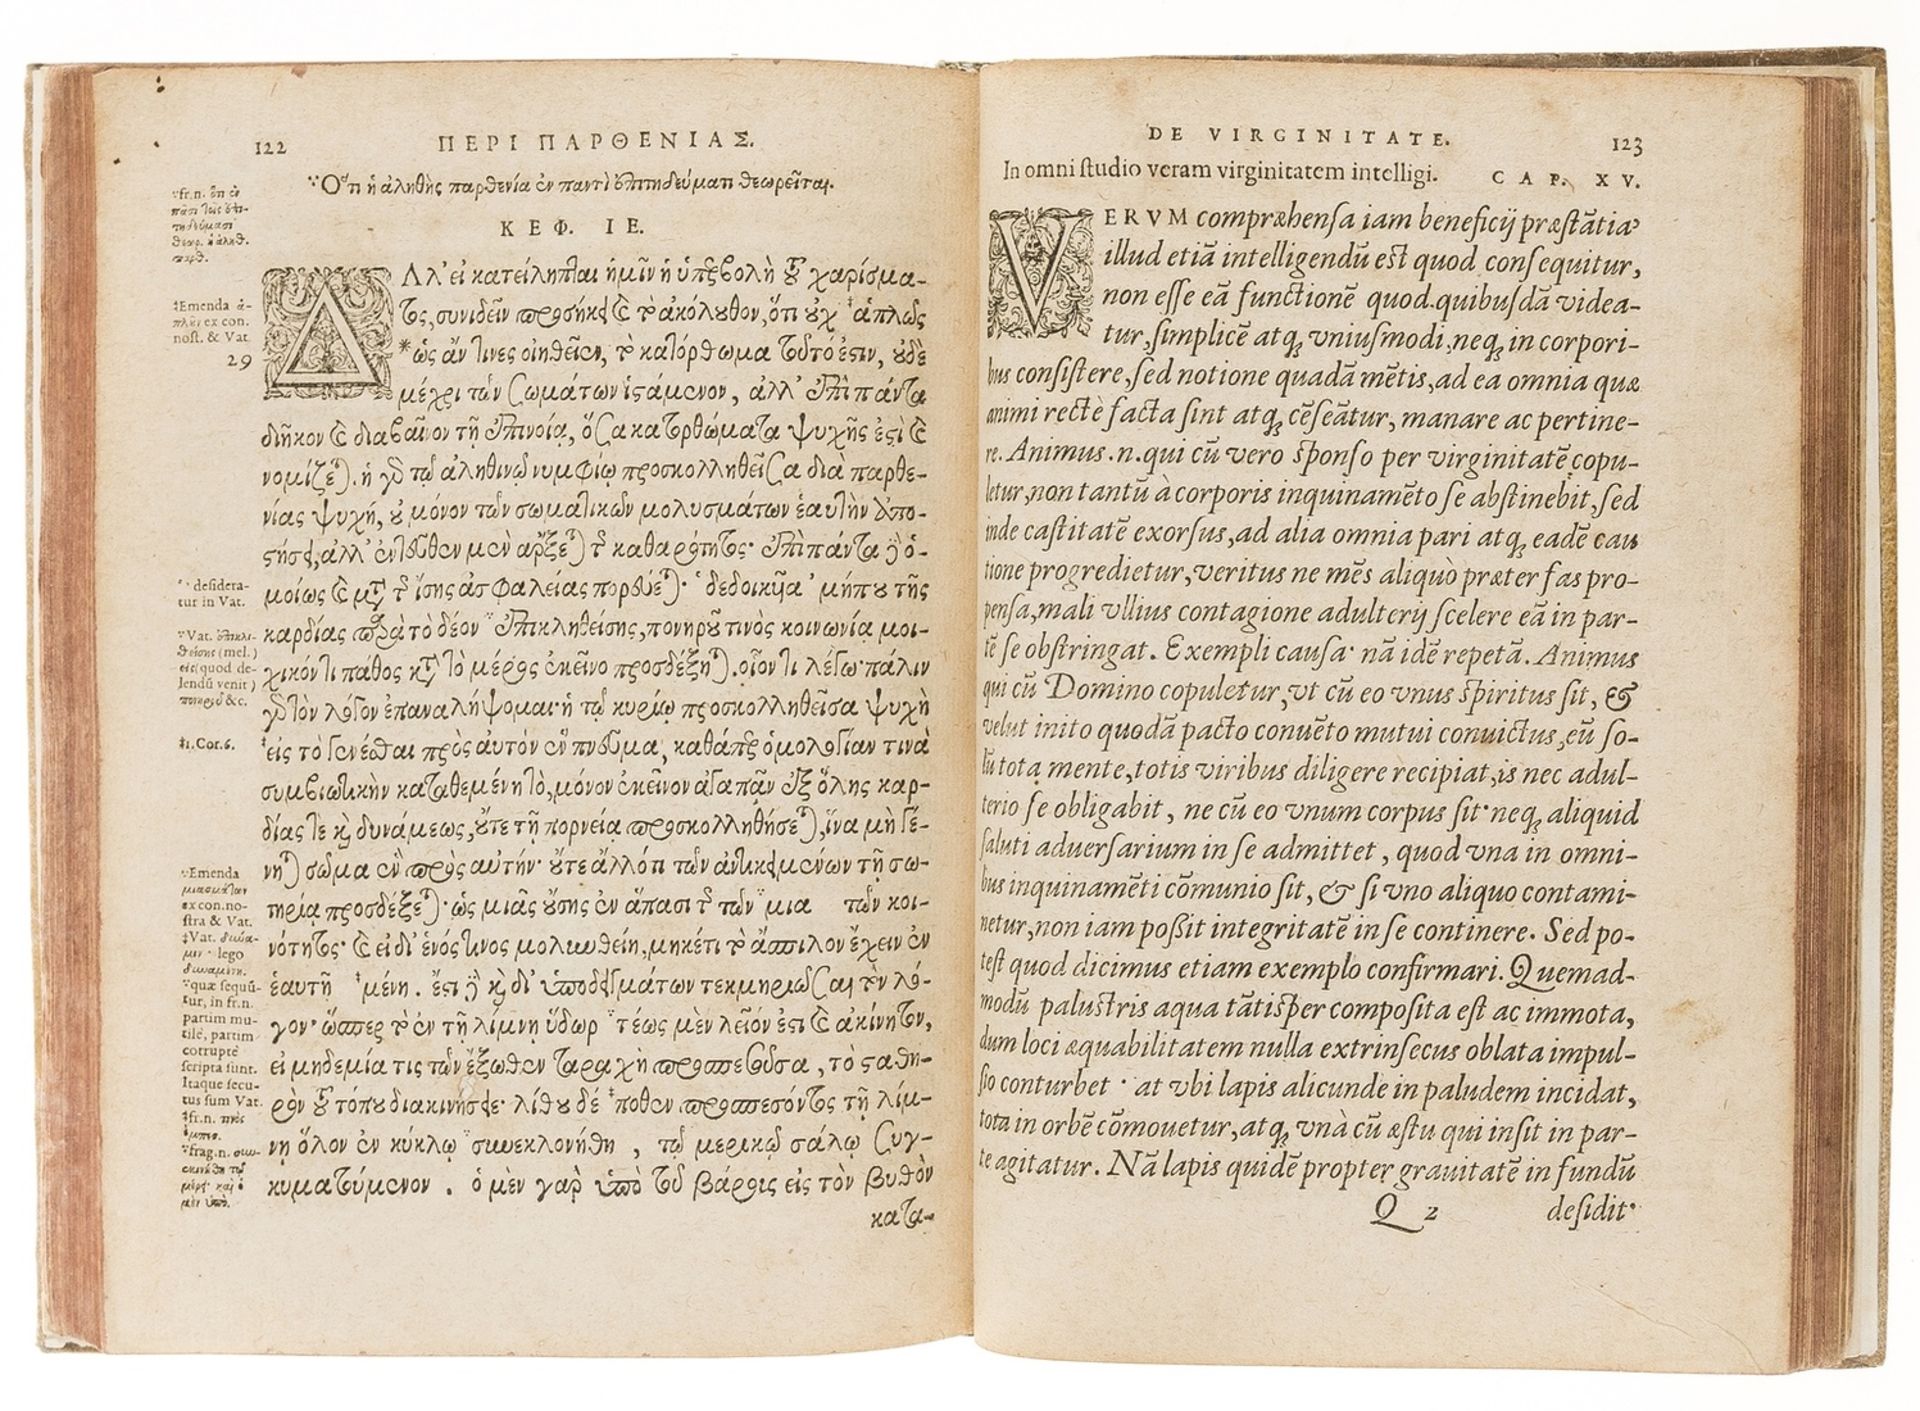 122
ΠΕΡΙ ΠΑΡΘΕΝΙΑΣ.
Ὅτι ἡ ἀληθὴς παρθενία ἐν παντὶ ἐπιτηδεύματι θεωρεῖται.
ΚΕΦ. ΙΕ.
ΑΛλ' εἰ κατείληπται ἡμῖν ἡ ὑπερβολὴ τοῦ χαρίσμα-
τος, συνιδεῖν προσήκει καὶ τὸ ἀκόλουθον, ὅτι οὐχ ‡ἁπλῶς
*ὡς ἄν τινες οἰηθεῖεν, τὸ κατόρθωμα τοῦτό ἐστιν, οὐδὲ
μέχρι τῶν σωμάτων ἱστάμενον, ἀλλ' ἐπὶ πάντα
διῆκον καὶ διαβαῖνον τῇ ἐπινοίᾳ, ὅσα κατορθώματα ψυχῆς ἐστὶ καὶ
νομίζεται. ἡ γὰρ τῷ ἀληθινῷ νυμφίῳ προσκολληθεῖσα διὰ παρθε-
νίας ψυχή, οὐ μόνον τῶν σωματικῶν μολυσμάτων ἑαυτὴν ἀπο-
στήσει, ἀλλ' ἐντεῦθεν μὲν ἄρξεται τῆς καθαρότητος· ἐπὶ πάντα δὲ ὁ-
μοίως καὶ μετὰ τῆς ἴσης ἀσφαλείας πορεύεται· δεδοικυῖα μήπου τῆς
καρδίας παρὰ τὸ δέον ἐπικληθείσης, πονηροῦ τινὸς κοινωνίᾳ μοι-
χικόν τι πάθος κατὰ τὸ μέρος ἐκεῖνο προσδέξηται. οἷόν τι λέγω· πάλιν
γὰρ τὸν λόγον ἐπαναλήψομαι· ἡ τῷ κυρίῳ προσκολληθεῖσα ψυχὴ
‡εἰς τὸ γενέσθαι πρὸς αὐτὸν ἓν πνεῦμα, καθάπερ ὁμολογίαν τινὰ
συμβιωτικὴν καταθεμένη τὸ, μόνον ἐκεῖνον ἀγαπᾶν ἐξ ὅλης καρ-
δίας τε καὶ δυνάμεως, οὔτε τῇ πορνείᾳ προσκολληθήσεται, ἵνα μὴ γέ-
νηται σῶμα ἓν πρὸς αὐτήν· οὔτε ἄλλό τι τῶν ἀντικειμένων τῇ σω-
τηρίᾳ προσδέξεται· ὡς μιᾶς οὔσης ἐν ἅπασι τῆς τῶν μια των κοι-
νότητος· καὶ εἰ δι' ἑνός τινος μολυνθείη, μηκέτι τὸ ἄσπιλον ἔχειν ἐν
ἑαυτῇ ‡μένη. ἔστι δὲ καὶ δι' ὑποδειγμάτων τεκμηριῶσαι τὸν λό-
γον· ὥσπερ τὸ ἐν τῇ λίμνῃ ὕδωρ τέως μὲν λεῖόν ἐστι καὶ ἀκίνητον,
εἰ μηδεμία τις τῶν ἔξωθεν ταραχὴ προσπεσοῦσα, τὸ σταθη-
ρὸν τοῦ τόπου διακινήσειε· λίθου δέ ‡ποθεν προσπεσόντος τῇ λίμ-
νῃ ὅλον ἐν κύκλῳ συνεκλονήθη, τῷ μερικῷ σάλῳ συγ-
κυματούμενον. ὁ μὲν γὰρ ὑπὸ τοῦ βάρους εἰς τὸν βυθὸν
κατα-
‡Emenda ἁ-
πλῆν ex con.
nost. & Vat.
29
desidera-
tur in Vat.
‡1. Cor. 6.
Emenda
μιασμάτων
ex con. no-
stra & Vat.
quæ sequū-
tur, in fr. n.
partim mu-
tilè, partim
corruptè
scripta sunt.
Itaque secu-
tus sum Vat.
DE VIRGINITATE.
123
In omni studio veram virginitatem intelligi. CAP. XV.
VERVM compræhensa iam beneficij præstātia,
illud etiā intelligendū est quod consequitur,
non esse eā functionē quod quibusdā videa-
tur, simplicē atq; vniusmodi, neq; in corpori-
bus consistere, sed notione quadā mētis, ad ea omnia quæ
animi rectè facta sint atq; cēseātur, manare ac pertine-
re. Animus .n. qui cū vero sponso per virginitatē copu-
letur, non tantū à corporis inquinamēto se abstinebit, sed
inde castitatē exorsus, ad alia omnia pari atq; eadē cau
tione progredietur, veritus ne mēs aliquò præter fas pro-
pensa, mali vllius contagione adulterij scelere eā in par-
tē se obstringat. Exempli causa· nā idē repetā. Animus
qui cū Domino copuletur, vt cū eo vnus spiritus sit, &
velut inito quodā pacto conuēto mutui conuictus, eū so-
lū tota mente, totis viribus diligere recipiat, is nec adul-
terio se obligabit, ne cū eo vnum corpus sit· neq; aliquid
saluti aduersarium in se admittet, quod vna in omni-
bus inquinamēti cōmunio sit, & si vno aliquo contami-
netur, non iam possit integritatē in se continere. Sed po-
test quod dicimus etiam exemplo confirmari. Quemad-
modū palustris aqua tātisper composita est ac immota,
dum loci æquabilitatem nulla extrinsecus oblata impul-
sio conturbet· at vbi lapis alicunde in paludem incidat,
tota in orbē cōmouetur, atq; vnà cū æstu qui insit in par-
te agitatur. Nā lapis quidē propter grauitatē in fundū
Q 2 desidit·